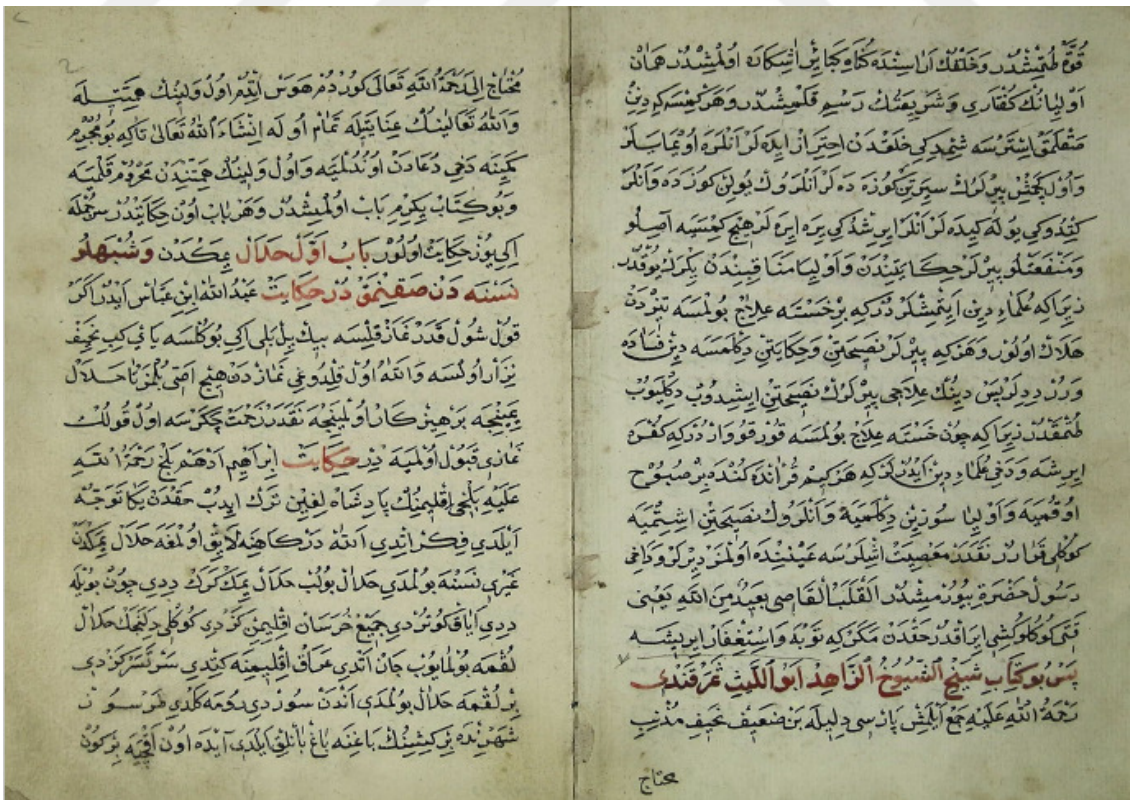 قوة طتمشدر وخلقك اراسنده كناه كبائر اشكاره اولمشدر همان
اوليانك كفتاري و شريعتك رسمي قلمشدر و هر كمسه كه دين
صقلمق استرسه شمدكي خلقدن احتراز ايده لر انلره اويمايه لر
و اول كچمش پيرلرك سيرتن كوزه ده لر انلروك يولن كوزده و انلر
كتدوكي يوله كيده لر انلر ايرشدكي يره ايره لر هيچ كمسيه اصلو
و منفعتلو پيرلر حكايتندن و اوليا مناقبندن يكرك يوقدر
زيرا كه علماء دين ايتمشلردر كه بر خسته علاج بولمسه تيزدن
هلاك اولور و هر كه پيرلر نصيحتن و حكايتن دكلمسه دين فساده
وررديرلر پس دينك علاجي پيرلرك نصيحتن ايشدوب دكليوب
طتمقدر زيرا كه چون خسته علاج بولمسه قورقو واردر كه كفره
ايرشه و دخي علماء دين ايدرلر كه هر كيم قرآنده كنده بر صبوح
اوقميه و اوليا سوزين دكلميه و انلروك نصيحتن اشتميه
كوكلي قرارر نقدر معصيت اشلرسه عيننده اولمز ديرلر و داخي
رسول حضرة بيورمشدر القلب القاصي بعيد من الله يعني
قتي كوكلو كشي ايراقدر حقدن مكر كه توبه و استغفار ايريشه
پس بو كتاب شيخ الشيوخ الزاهد ابو الليث ثمرقندي
رحمة الله عليه جمع ايلمش پارسي دليله بن ضعيف نحيف مذنب
محتاج
محتاج الى رحمة الله تعالى كوردم هوس ايتدم اول ولينك همتيله
و الله تعالينك عنايتيله تمام اوله انشاء الله تعالى تا كه بو مجرم
كمينه دخي دعادن اونتلميه و اول ولينك همتندن محروم قلميه
و بو كتاب يكرمي باب اولمشدر و هر باب اون حكايتدر سر جمله
اكي يوز حكايت اولور باب اول حلال يمكدن و شبهلو
نسنه دن صقنمق در حكايت عبد الله ابن عباس ايدر اكر
قول شول قدر نماز قلسه بيك بلى اكي بوكلسه ياي كبي نحيف
نزار اولسه و الله اول قلدوغي نمازدن هيچ اصي بلمز تا حلال
ييمينجه پرهيزكار اولمينجه نقدر زحمت چكرسه اول قوللك
نمازي قبول اولميه در حكايت ابراهيم ادهم بلخ رحمة الله
عليه بلخي اقليمنك پادشاه لغين ترك ايدب حقدن يكا توجه
ايلدي فكر اتدي الله دركاهنه لايق اولمغه حلال يمكدن
غيري نسنه بولمدي حلال بولب حلال يمك كرك ديدي چون بويله
ديدي اياق كوتردي جميع خرسان اقليمن كزدي كوكلي دلنجك حلال
لقمه بولمايوب جان اتدي عراق اقليمنه كيتدي سرتسر كزدي
بر لقمه حلال بولمدي اندن سوردي رومه كلدي طرسوس
شهرنده بر كشينك باغنه باغبانلق ايلدي آيده اون اقچيه بر كون